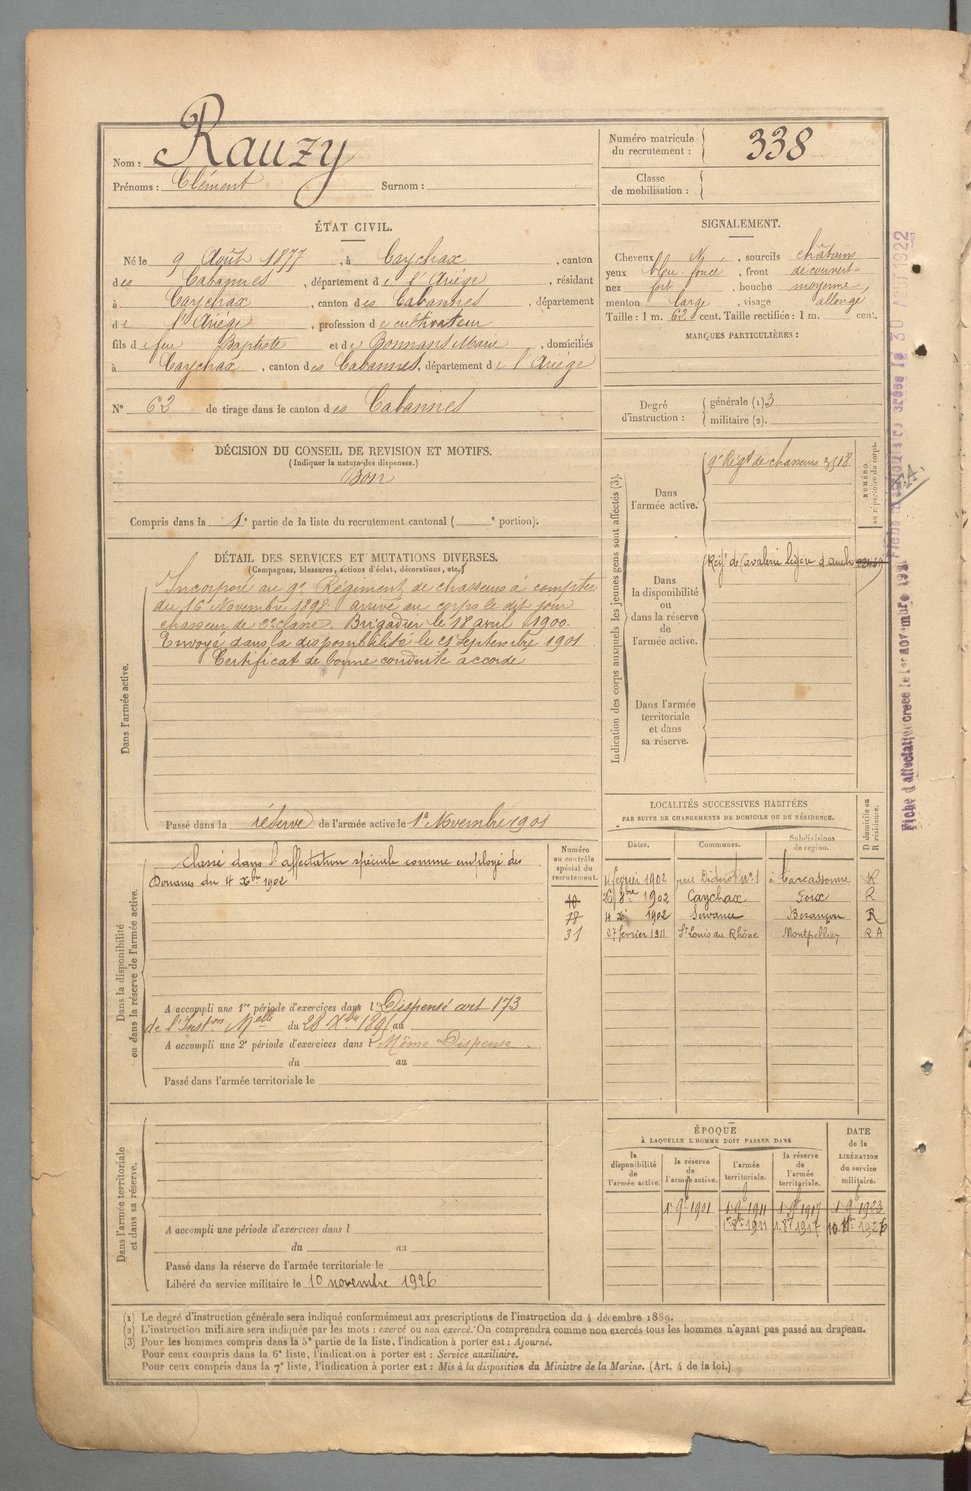 Nom : Rauzy
Prénoms : Clément Surnom :
Numéro matricule du recrutement : 338
Classe de mobilisation :
ÉTAT CIVIL.
Né le 9 Août 1877, à Caychax, canton
des Cabannes, département de l'Ariège, résidant
à Caychax, canton des Cabannes, département
de l'Ariège, profession de cultivateur
fils de feu Baptiste et de Marie, domiciliés
à Caychax, canton des Cabannes, département de l'Ariège
N° 62 de tirage dans le canton des Cabannes
SIGNALEMENT.
Cheveux N., sourcils châtains
yeux bleu foncé, front découvert
nez fort, bouche moyenne,
menton large, visage allongé
Taille : 1 m. 62 cent. Taille rectifiée : 1 m. cent.
MARQUES PARTICULIÈRES :
Degré d'instruction : générale (1) 3
militaire (2).
DÉCISION DU CONSEIL DE REVISION ET MOTIFS.
(Indiquer la nature des dispenses.)
Bon
Compris dans la 1e partie de la liste du recrutement cantonal ( e portion).
DÉTAIL DES SERVICES ET MUTATIONS DIVERSES.
(Campagnes, blessures, actions d'éclat, décorations, etc.)
Dans l'armée active.
Incorporé au 9e Régiment de chasseurs à compter
du 16 Novembre 1898 arrivé au corps le dit jour
chasseur de 2e classe. Brigadier le 18 avril 1900.
Envoyé dans la disponibilité le 21 Septembre 1901
Certificat de bonne conduite accordé
Passé dans la réserve de l'armée active le 1er Novembre 1901
Indication des corps auxquels les jeunes gens sont affectés (3).
NUMÉRO au répertoire du corps.
Dans l'armée active.
9e Régt de chasseurs 3518
Dans la disponibilité ou dans la réserve de l'armée active.
Régt de Cavalerie légère d'Auch
Dans l'armée territoriale et dans sa réserve.
Dans la disponibilité ou dans la réserve de l'armée active.
Numéro au contrôle spécial du recrutement.
Classé dans l'affectation spéciale comme employé des
Douanes du 4 Xbre 1902
10
78
31
A accompli une 1re période d'exercices dans l Dispensé art 173
de l'Inston Mlle du 28 Xbre 1895 au
A accompli une 2e période d'exercices dans l Même Dispense
du au
Passé dans l'armée territoriale le
LOCALITÉS SUCCESSIVES HABITÉES
PAR SUITE DE CHANGEMENTS DE DOMICILE OU DE RÉSIDENCE.
Dates. Communes. Subdivisions de région. D domicile ou R résidence.
4 février 1902 rue Diderot N° 1 à Carcassonne R
26 8bre 1902 Caychax Foix R
4 X 1902 Servance Besançon R
27 février 1911 St Louis du Rhône Montpellier R A
Dans l'armée territoriale et dans sa réserve.
A accompli une période d'exercices dans l
du au
Passé dans la réserve de l'armée territoriale le
Libéré du service militaire le 10 novembre 1926
ÉPOQUE
À LAQUELLE L'HOMME DOIT PASSER DANS
la disponibilité de l'armée active.
la réserve de l'armée active.
l'armée territoriale.
la réserve de l'armée territoriale.
DATE de la LIBÉRATION du service militaire.
1er 9bre 1901 1 9bre 1911 1 9bre 1917 1 9 1923
1911 1917 10 1926
(1) Le degré d'instruction générale sera indiqué conformément aux prescriptions de l'instruction du 4 décembre 1889.
(2) L'instruction militaire sera indiquée par les mots : exercé ou non exercé. On comprendra comme non exercés tous les hommes n'ayant pas passé au drapeau.
(3) Pour les hommes compris dans la 5e partie de la liste, l'indication à porter est : Ajourné.
Pour ceux compris dans la 6e liste, l'indication à porter est : Service auxiliaire.
Pour ceux compris dans la 7e liste, l'indication à porter est : Mis à la disposition du Ministre de la Marine. (Art. 4 de la loi.)